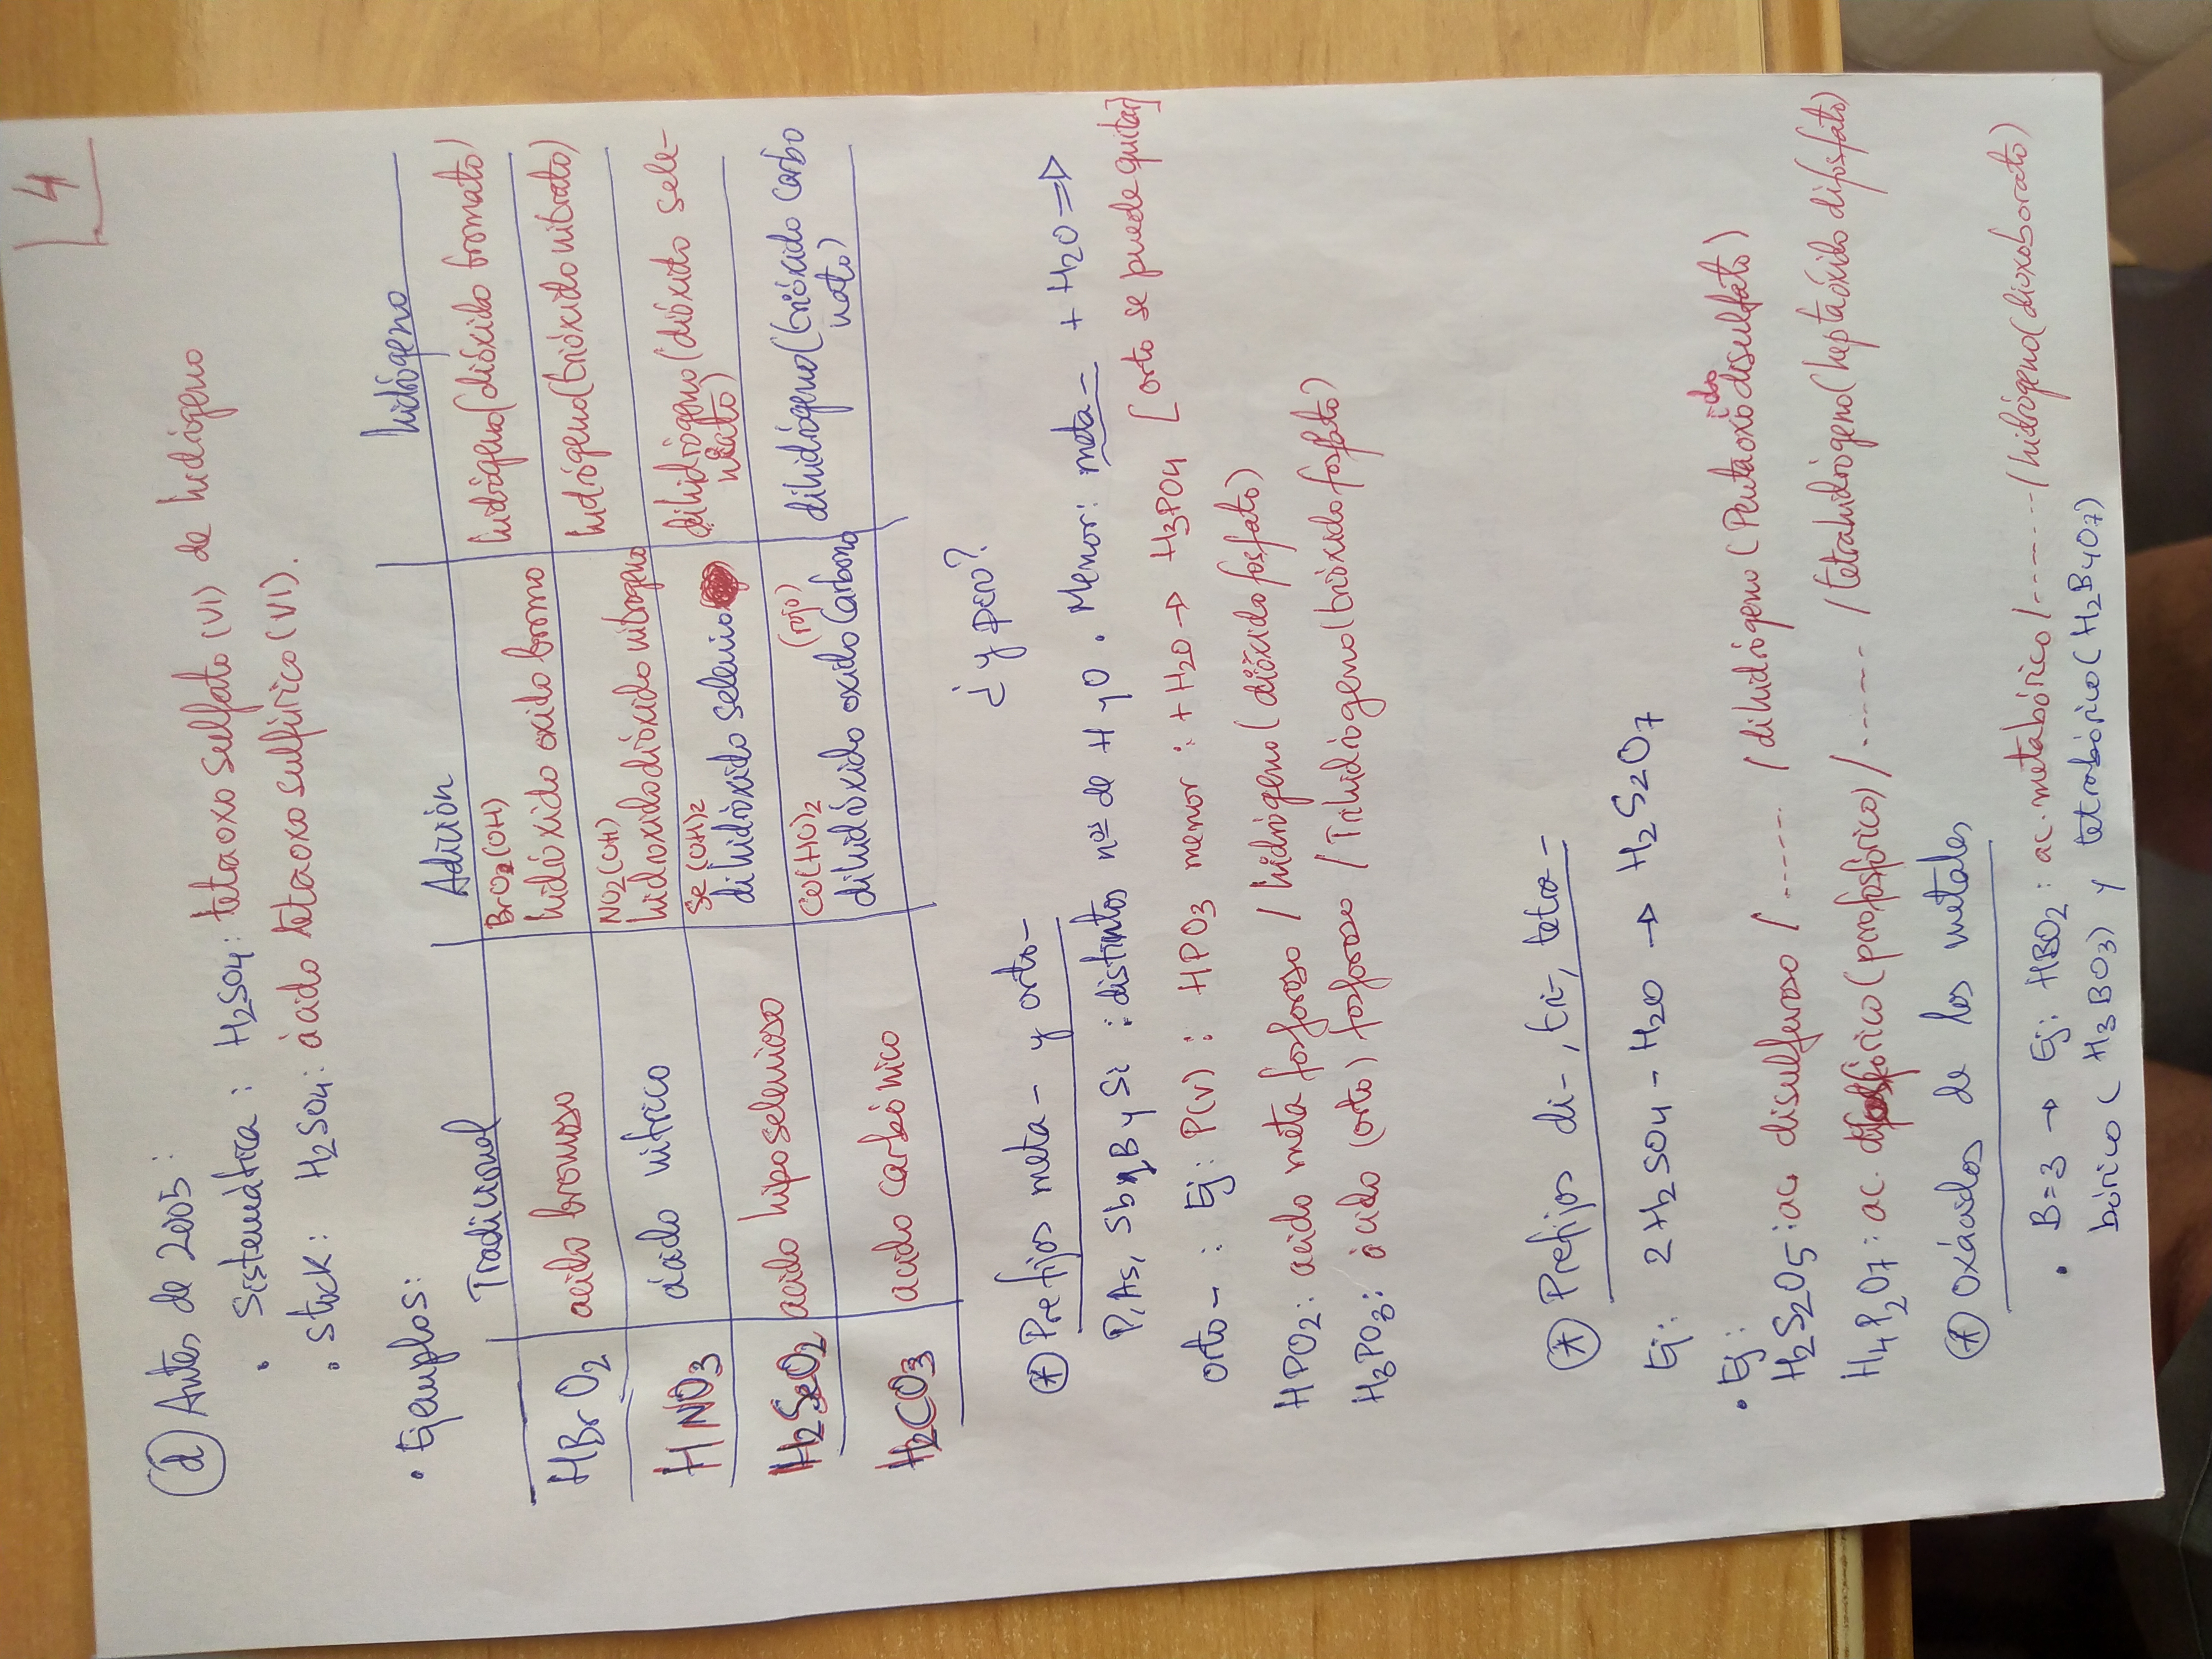 4
d) Antes de 2005:
· Sistemática: H2SO4: tetraoxo sulfato (VI) de hidrógeno
· Stock: H2SO4: ácido tetraoxosulfúrico (VI).
· Ejemplos:
Tradicional Adición hidrógeno
HBrO2 ácido bromoso BrO2(OH) hidróxido oxido bromo hidrógeno(dióxido bromato)
HNO3 ácido nítrico NO2(OH) hidroxidodióxido nitrogeno hidrógeno(trióxido nitrato)
H2SeO2 acido hiposelenioso Se(OH)2 dihidróxido selenio dihidrógeno (dióxido sele-
nato)
H2CO3 acido carbónico CO(HO)2 (rojo) dihidróxido oxido Carbono dihidrógeno(trióxido carbo
nato)
¿y pero?
* Prefijos meta- y orto-
P, As, Sb, B y Si : distintos nos de H y O. Menor: meta- + H2O ⇒
orto- : Ej: P(V): HPO3 menor: + H2O → H3PO4 [orto se puede quitar]
HPO2: acido meta fosforoso / hidrógeno(dióxido fosfato)
H3PO3: ácido (orto) fosforoso / Trihidrógeno(trióxido fosfato)
* Prefijos di-, tri-, tetra-
Ej: 2H2SO4 - H2O → H2S2O7
· Ej:
H2S2O5: ac. disulfuroso /..... / dihidrógeno (Pentaoxidodisulfato)
H4P2O7: ac. difosfórico (pirofosfórico) /..... / tetrahidrógeno(heptaóxido difosfato)
* Oxácidos de los metales
· B=3 → Ej: HBO2: ac. metabórico /....../ hidrógeno(dioxoborato)
bórico (H3BO3) y tetrabórico (H2B4O7)